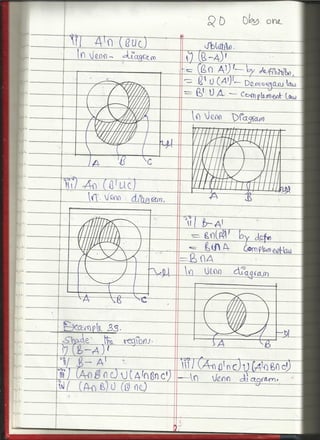 20 Obs one
ii/ A'∩ (BUC)
In venn- diagram
A B C
iii/ A∩ (B'UC)
In venn diagram.
A B C
Example 33.
Shade the regions.
i/ (B-A)'
ii/ B-A'
iii/ (A∩B∩C)U(A'∩B∩C')
iv/ (A∩B)U(B∩C)
solution.
i/ (B-A)'
= (B∩A')' - by definition.
= B'U(A')' - Demorgans law
= B'UA - Complement law
In Venn Diagram
A B
ii/ B-A'
= B∩(A')' by defn
= B∩A Complement law
= B∩A
In venn diagram
A B
iii/ (A∩B'∩C)U(A'∩B∩C')
- In venn diagram.